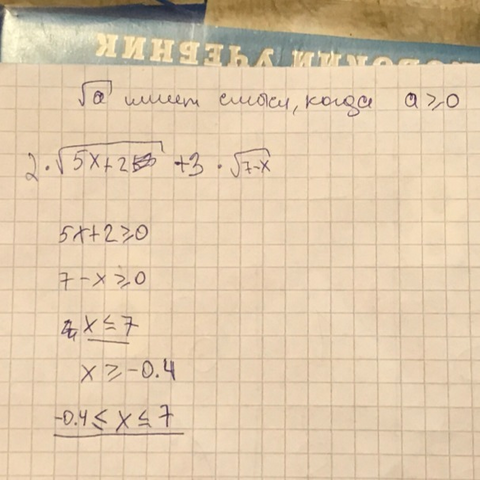 СКИЙ УЧЕБНИК
√a имеет смысл, когда a ≥ 0
2·√5x+2 +3·√7-x
5x+2 ≥ 0
7-x ≥ 0
x ≤ 7
x ≥ -0.4
-0.4 ≤ x ≤ 7